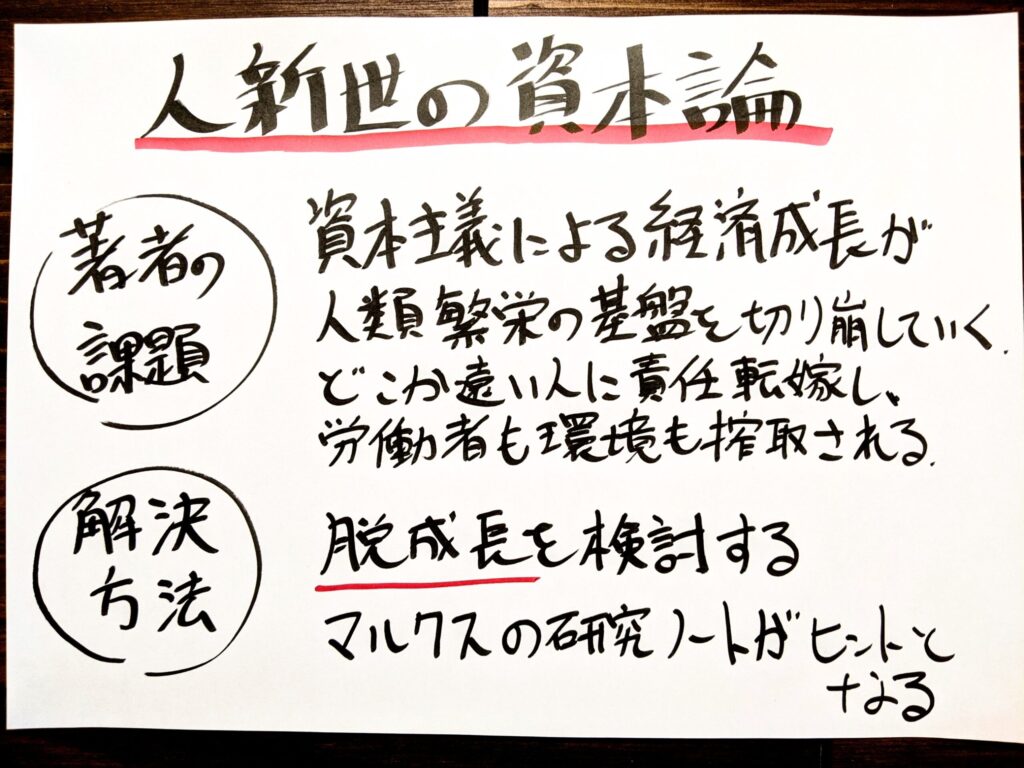 人新世の資本論
著者の
課題
資本主義による経済成長が
人類繁栄の基盤を切り崩していく.
どこか遠い人に責任転嫁し、
労働者も環境も搾取される.
解決
方法
脱成長を検討する
マルクスの研究ノートがヒントと
なる